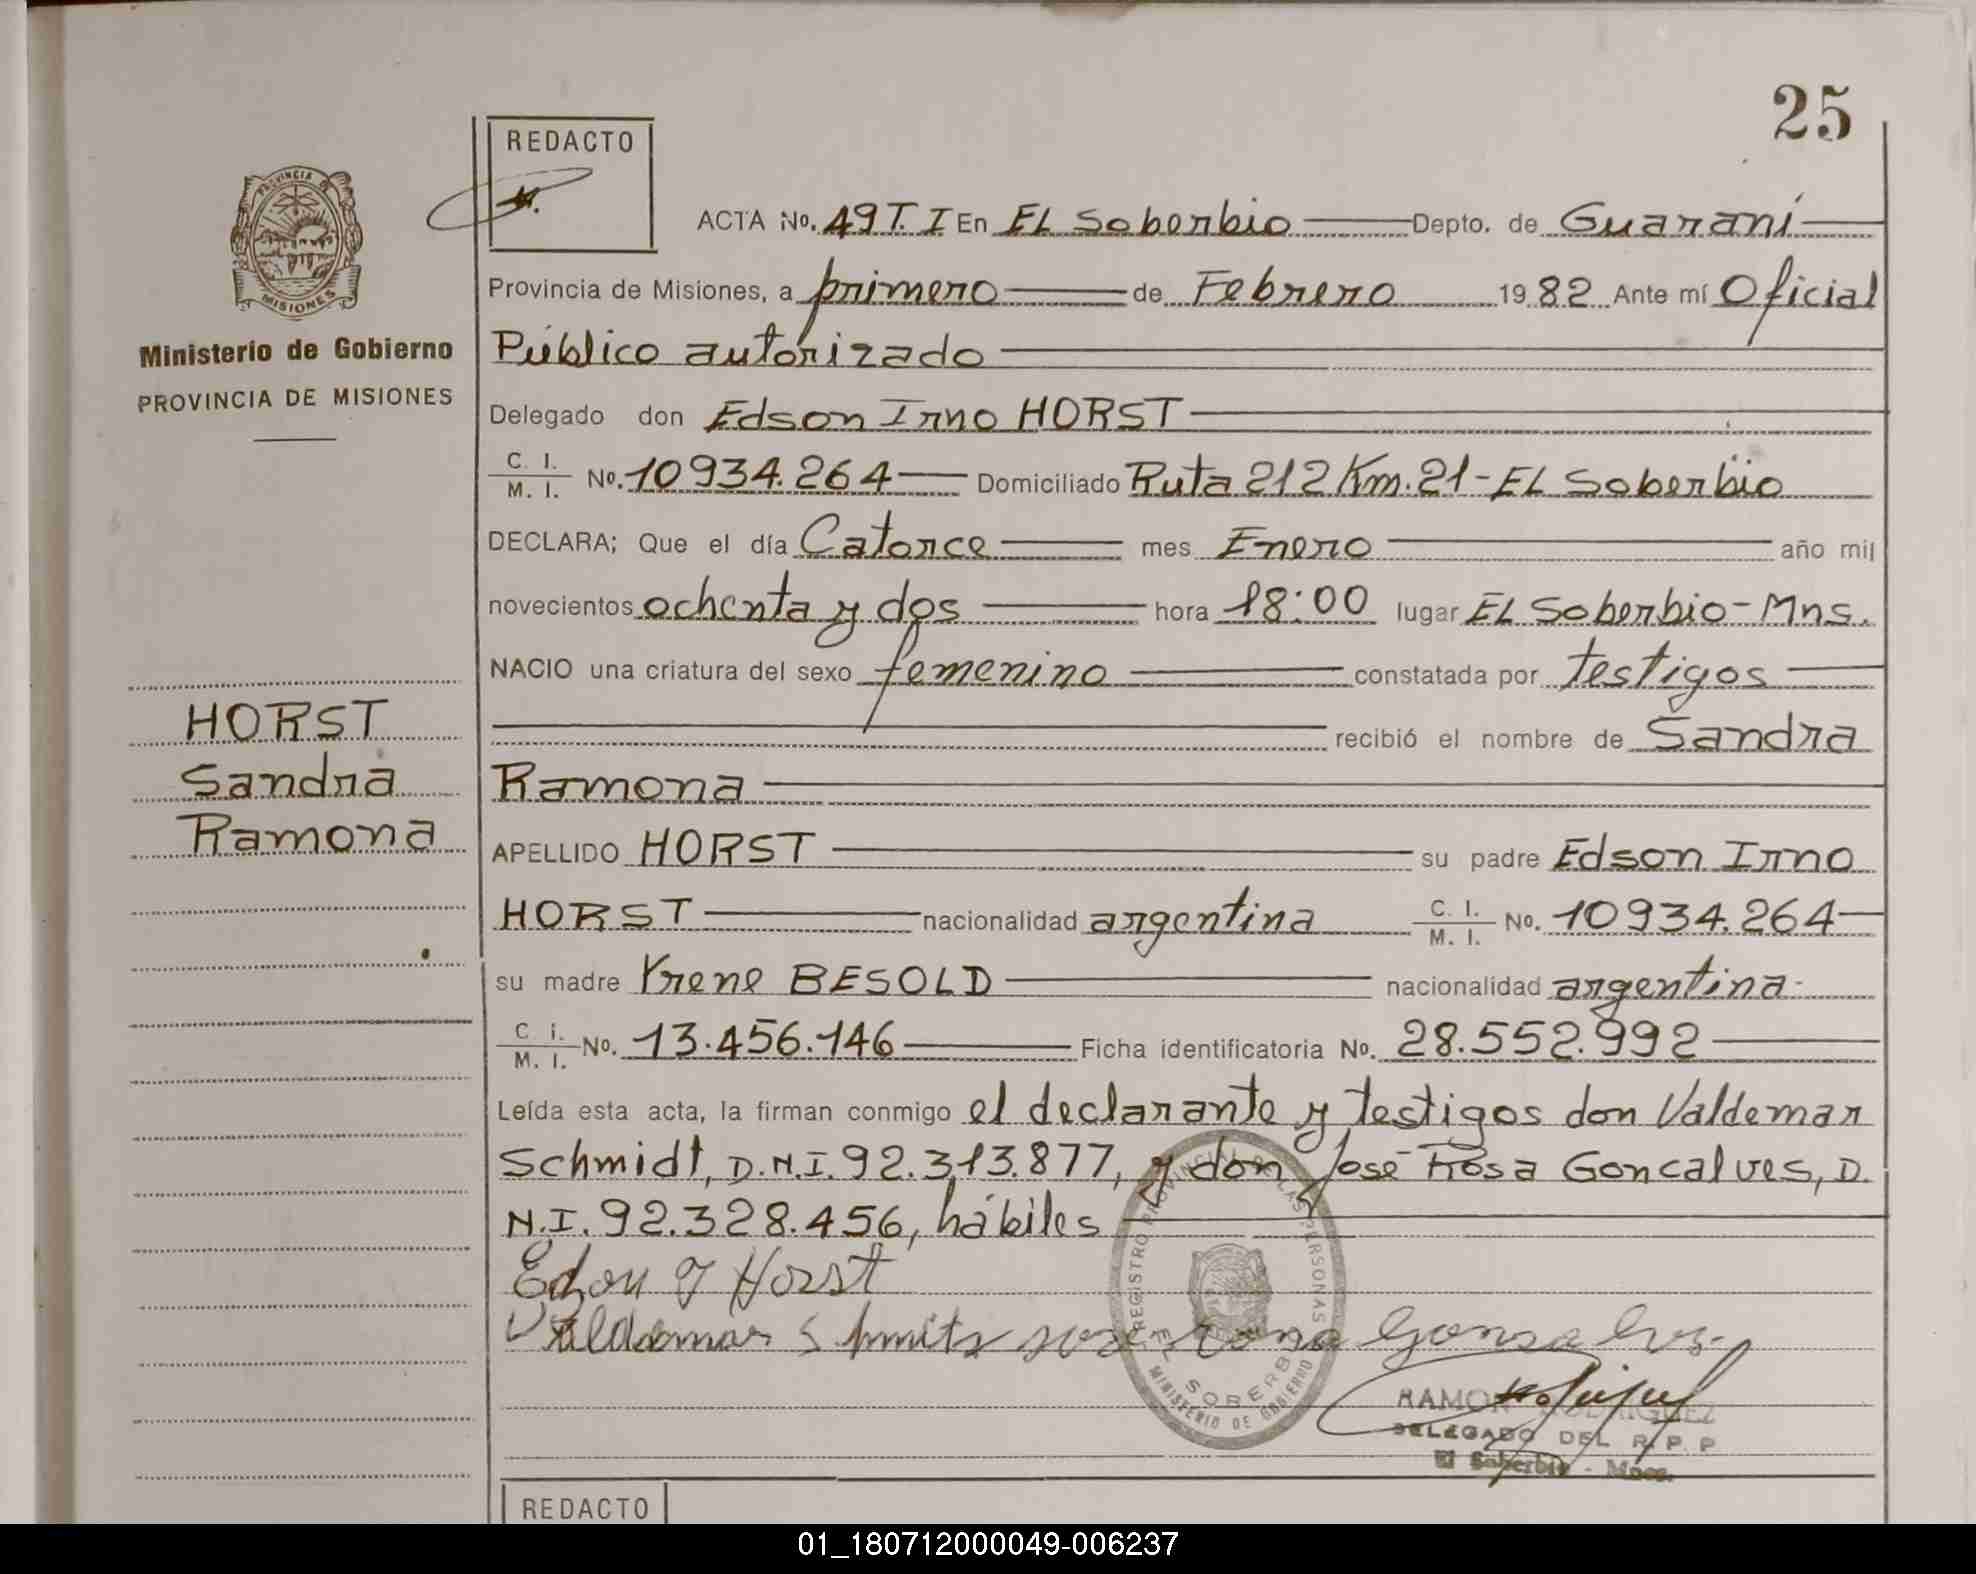 25
REDACTO
ACTA No. 49 T. I En EL Soberbio Depto. de Guaraní
Provincia de Misiones, a primero de Febrero 1982 Ante mí Oficial
Público autorizado
Delegado don Edson Irno HORST
C. I.
M. I. No. 10934.264 Domiciliado Ruta 212 Km. 21 - EL Soberbio
DECLARA; Que el día Catorce mes Enero año mil
novecientos ochenta y dos hora 18:00 lugar EL Soberbio - Mns.
NACIO una criatura del sexo femenino constatada por testigos
recibió el nombre de Sandra
Ramona
APELLIDO HORST su padre Edson Irno
HORST nacionalidad argentina C. I.
M. I. No. 10934.264
su madre Yrene BESOLD nacionalidad argentina
C. i.
M. I. No. 13.456.146 Ficha identificatoria No. 28.552.992
Leída esta acta, la firman conmigo el declarante y testigos don Valdemar
Schmidt, D.N.I. 92.313.877, y don José Rosa Goncalves, D.
N.I. 92.328.456, hábiles
Horst
PROVINCIA DE
MISIONES
Ministerio de Gobierno
PROVINCIA DE MISIONES
HORST
Sandra
Ramona
REGISTRO PROVINCIAL DE LAS PERSONAS
EL SOBERBIO
MINISTERIO DE GOBIERNO
RAMON RODRIGUEZ
DELEGADO DEL R. P. P
El Soberbio - Mnes.
REDACTO
01_180712000049-006237